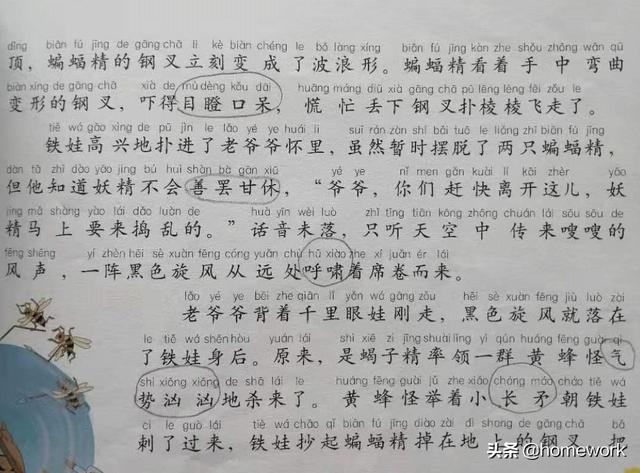 dǐng biān fú jīng de gāng chā lì kè biàn chéng le bō làng xíng biān fú jīng kàn zhe shǒu zhōng wān qū
顶，蝙蝠精的钢叉立刻变成了波浪形。蝙蝠精看着手中弯曲
biàn xíng de gāng chā xià de mù dèng kǒu dāi huāng máng diū xià gāng chā pū lēng lēng fēi zǒu le
变形的钢叉，吓得目瞪口呆，慌忙丢下钢叉扑棱棱飞走了。
tiě wá gāo xìng de pū jìn le lǎo yé ye huái lǐ suī rán zàn shí bǎi tuō le liǎng zhī biān fú jīng
铁娃高兴地扑进了老爷爷怀里，虽然暂时摆脱了两只蝙蝠精，
dàn tā zhī dào yāo jīng bú huì shàn bà gān xiū yé ye nǐ men gǎn kuài lí kāi zhèr yāo
但他知道妖精不会善罢甘休，“爷爷，你们赶快离开这儿，妖
jīng mǎ shàng yào lái dǎo luàn de huà yīn wèi luò zhǐ tīng tiān kōng zhōng chuán lái sōu sōu de
精马上要来捣乱的。”话音未落，只听天空中传来嗖嗖的
fēng shēng yí zhèn hēi sè xuàn fēng cóng yuǎn chù hū xiào zhe xí juǎn ér lái
风声，一阵黑色旋风从远处呼啸着席卷而来。
lǎo yé ye bēi zhe qiān lǐ yǎn wá gāng zǒu hēi sè xuàn fēng jiù luò zài
老爷爷背着千里眼娃刚走，黑色旋风就落在
le tiě wá shēn hòu yuán lái shì xiē zi jīng shuài lǐng yì qún huáng fēng guài qì
了铁娃身后。原来，是蝎子精率领一群黄蜂怪气
shì xiōng xiōng de shā lái le huáng fēng guài jǔ zhe xiǎo cháng máo cháo tiě wá
势汹汹地杀来了。黄蜂怪举着小长矛朝铁娃
cì le guò lái tiě wá chāo qǐ biān fú jīng diào zài dì shang de gāng chā bǎ
刺了过来，铁娃抄起蝙蝠精掉在地上的钢叉，把
头条 @homework